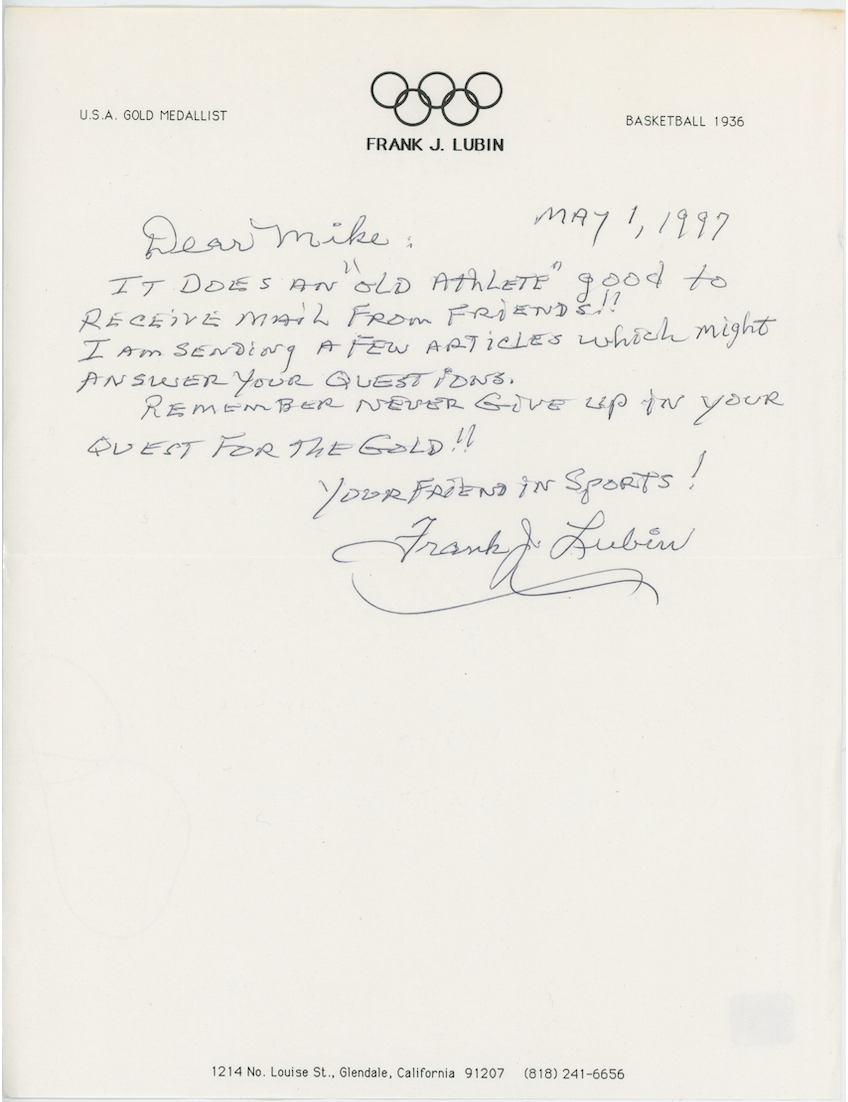 U.S.A. GOLD MEDALLIST
FRANK J. LUBIN
BASKETBALL 1936
MAY 1, 1997
Dear Mike:
IT DOES AN "OLD ATHLETE" good to
RECEIVE MAIL FROM FRIENDS!!
I AM SENDING A FEW ARTICLES which might
ANSWER YOUR QUESTIONS.
REMEMBER NEVER GIVE UP IN YOUR
QUEST FOR THE GOLD!!
YOUR FRIEND IN SPORTS!
Frank J. Lubin
1214 No. Louise St., Glendale, California 91207 (818) 241-6656